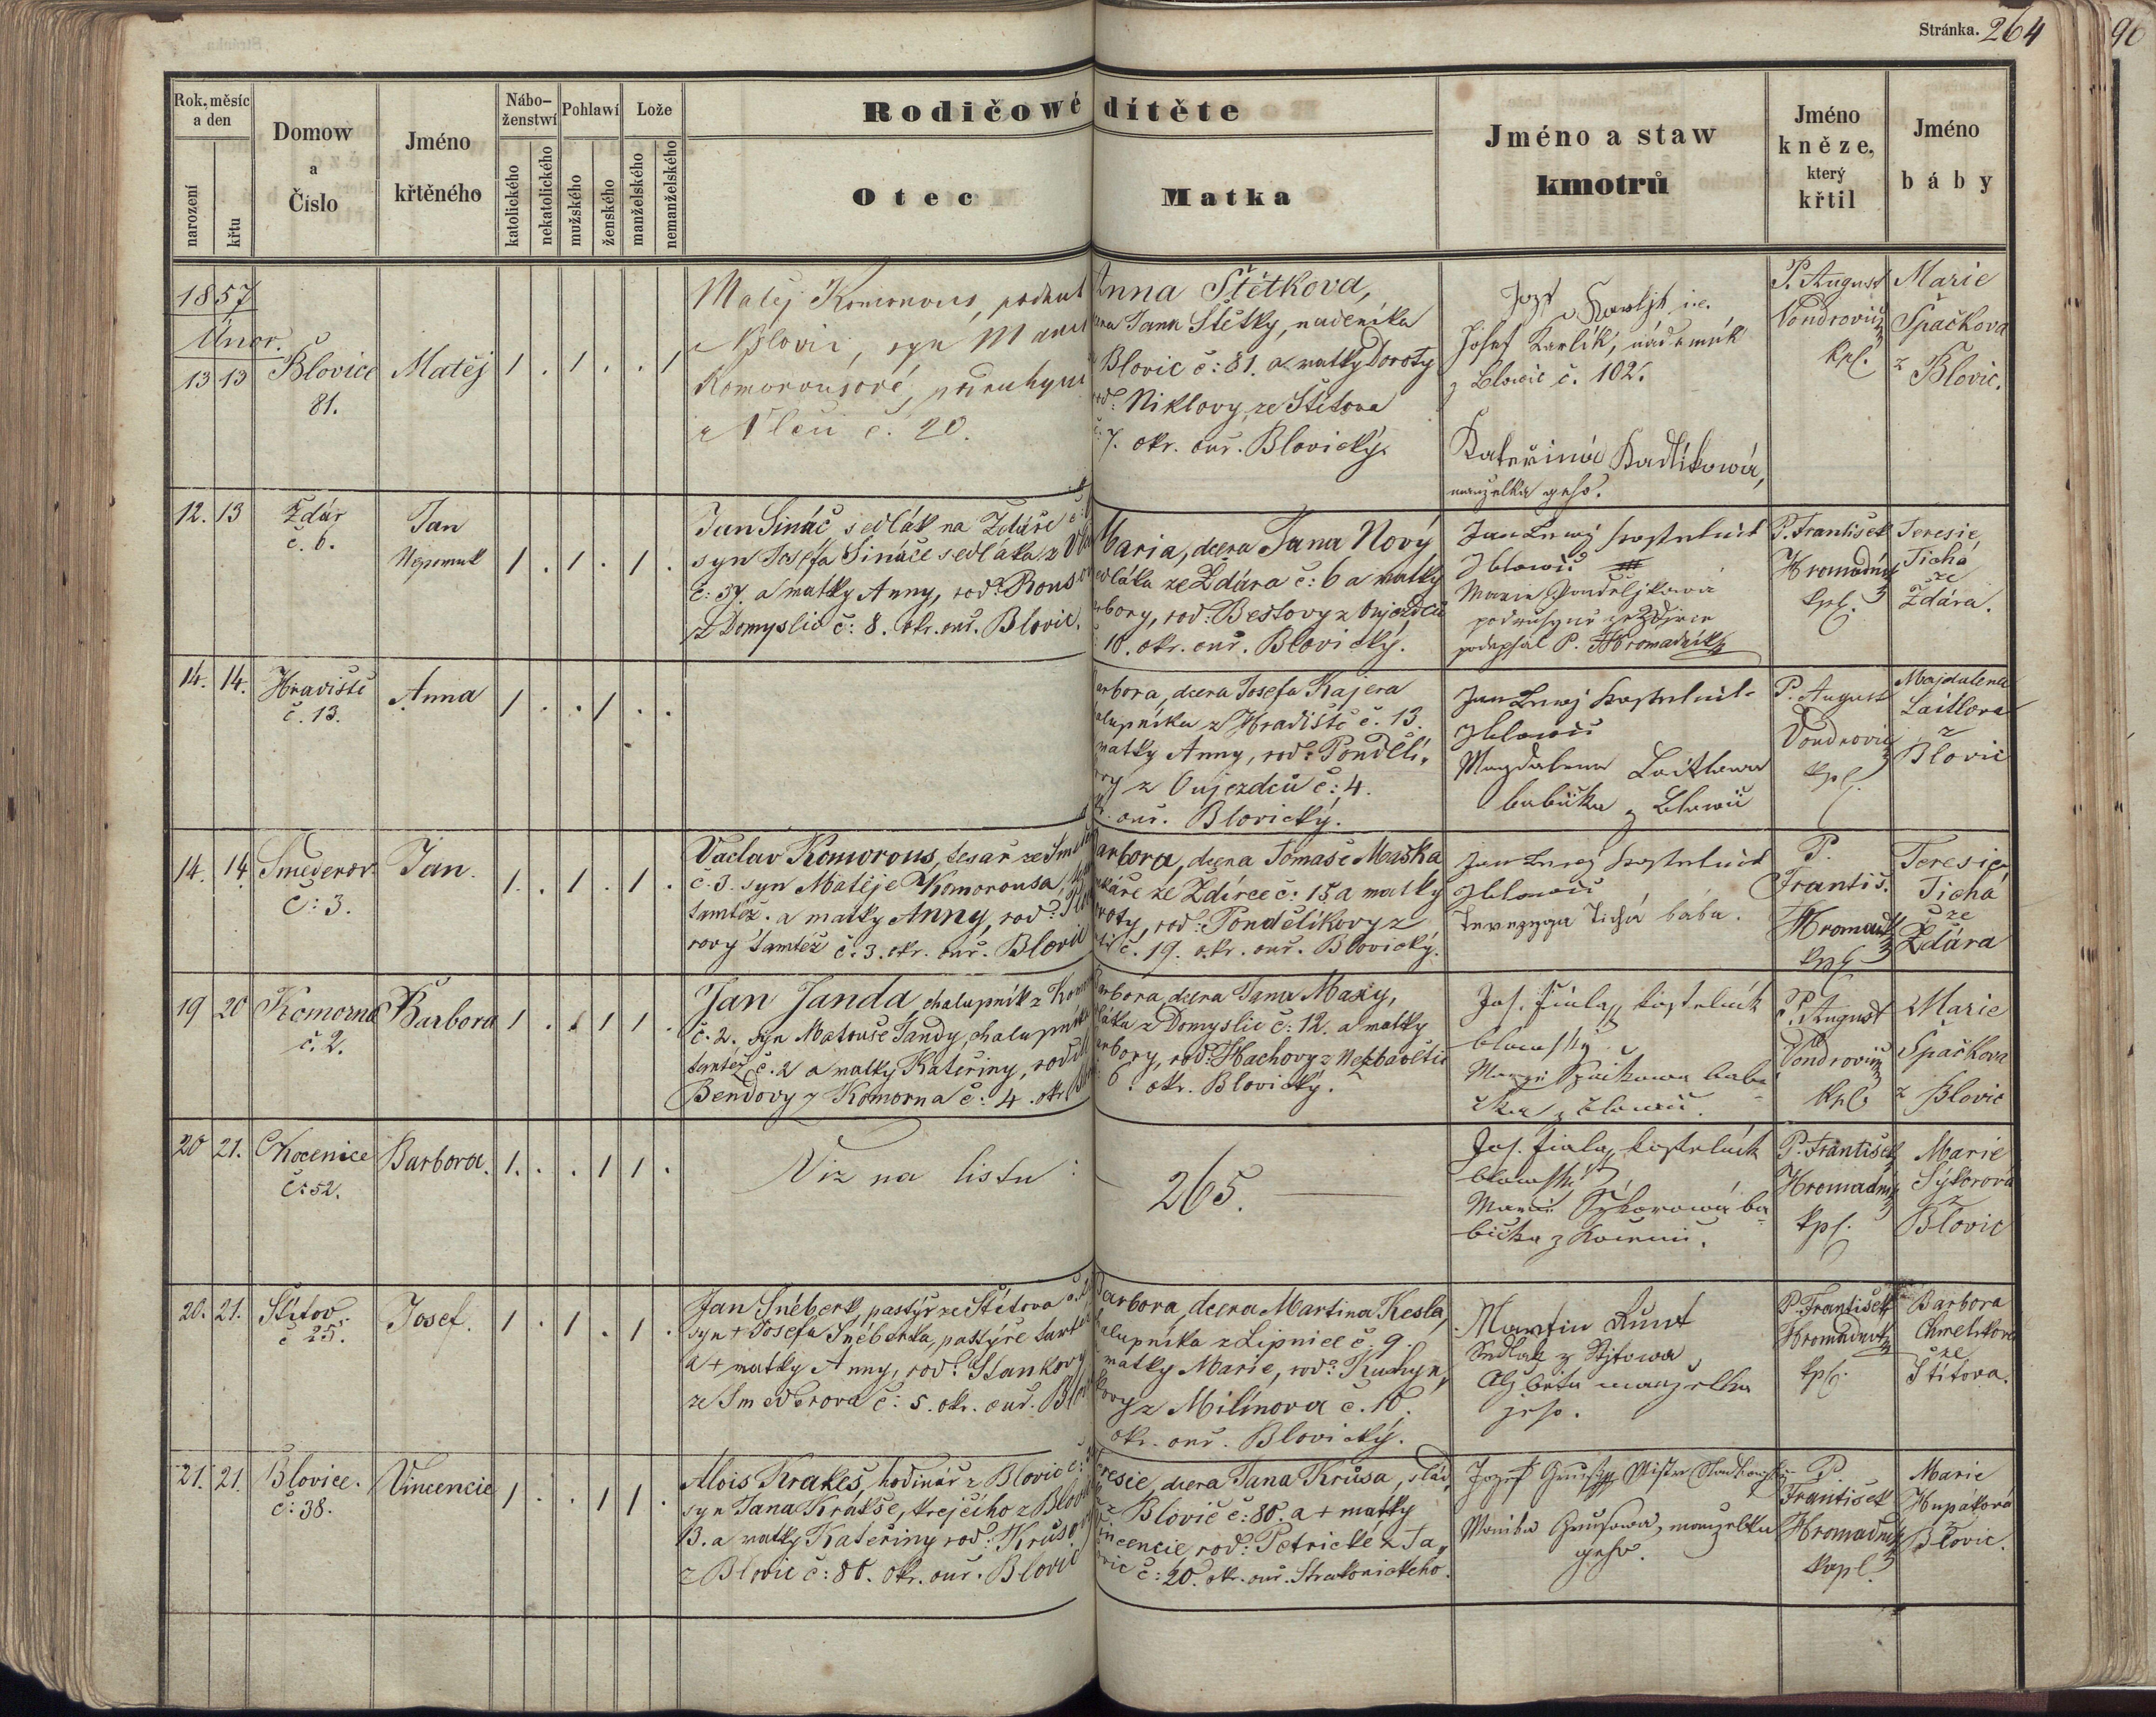 Stránka. 264
96
Rok, měsíc a den
narození
křtu
Domow
a
Čislo
Jméno
křtěného
Nábo-
ženstwí
katolického
nekatolického
Pohlawí
mužského
ženského
Lože
manželského
nemanželského
Rodičowé dítěte
Otec
Matka
Jméno a staw
kmotrů
Jméno
kněze,
který
křtil
Jméno
báby
1857
Únor.
13 13
Blovice
81.
Matěj
1 . 1 . . 1
Matěj Komorous, podruh
z Blovic, syn Marie
Komorousové, podruhyně
z Vlčí č. 20.
Anna Štětkova,
Jana Štětky, nádeníka
Blovic č: 81. a matky Doroty
rod: Niklovy ze Štítova
7. okr. ouř. Blovický.
Josef Karlík, nádeník
z Blowic č. 102.
Kateřina Karlíkowá,
manzelka geho.
P. August
Vondrovic
kpl.
Marie
Špačkova
z
Blovic.
12. 13
Ždár
č. 6.
Jan
Nepomuk
1 . 1 . 1 .
Jan Sináč sedlák na Ždáře č: 6
syn Josefa Sináče sedláka z
č: 57. a matky Anny, rod:
z Domyslic č: 8. okr. ouř. Blovic.
Maria, dcera Jana Nový
sedláka ze Ždára č: 6 a matky
rod: Bestovy z Oujezdců
10. okr. ouř. Blovický.
Jan kostelník
z Blowic
Marie Pondeljkowá
podruhyně ze Zdirce
podepsal P. Hromadník
P. František
Hromadník
kpl.
Teresie
Tichá
ze
Ždára.
14. 14.
Hradiště
č. 13.
Anna
1 . . 1 . .
Barbora, dcera Josefa Kajera
chalupníka z Hradiště č. 13.
matky Anny, rod: Ponděli„
z Oujezdců č: 4.
ouř. Blovický.
Jan kostelník
z Blowic
Magdalena Laitlowa
babička z Blowic
P. August
Vondrovic
kpl
Majdalena
Laitlova
z
Blovic
14. 14
Smederov
č: 3.
Jan.
1. . 1 . 1 .
Vaclav Komorous, tesař ze Smed
č. 3. syn Matěje Komorousa,
tamtéž. a matky Anny, rod:
rovy tamtéž č: 3. okr. ouř. Blovic
Barbora, dcera Tomáše Maška
ze Ždírce č: 15 a matky
Doroty, rod: Pondělíkovy z
č. 19. okr. ouř. Blovický.
Jan kostelník
z Blowic
Terezya Tichá bába.
P.
Františ.
Hromadk
kpl
Teresie
Tichá
ze
Ždára
19 20
Komorno
č. 2.
Barbora
1 . . 1 1 .
Jan Janda, chalupník z Kom
č. 2., syn Matouše Jandy, chalupník
tamtéž č. 2 a matky Kateřiny, rod
Bendovy z Komorna č: 4. okr
Barbora, dcera Jana Maxy,
z Domyslic č: 12. a matky
rod: Hachovy z
6. okr. Blovický.
Jos. Fiala, kostelník
blowský
Marie Špačkowa babi-
čka z Blowic.
P. August
Vondrovic
kpl
Marie
Špačkova
z Blovic
20 21.
Chocenice
č: 52.
Barbora.
1. . . 1 1 .
Viz na listu :
265.
Jos. Fiala, kostelník
blowský
Marie Sýkorowá ba-
bička z
P. František
Hromadník
kpl.
Marie
Sýkorova
z
Blovic
20. 21.
Štítov.
č 25.
Josef.
1 . 1 . 1 .
Jan Sněberk, pastýř ze Štítova č.
syn + Josefa Sněberka, pastýře tamt
a + matky Anny, rod: Stankovy
ze Smederova č: 5. okr. ouř. Blo
Barbora, dcera Martina Kesla,
chalupníka z Lipnice č. 9.
matky Marie, rod: Kuchyn„
kovy z Milinova č. 10.
okr. ouř. Blovický.
Martin Kunt
Sedlak z Stjtowa
Alžběta manzelka
geho.
P. František
Hromadník
kpl.
Barbora
Chmelikova
ze
Štítova.
21. 21.
Blovice.
č: 38.
Vincencie
1 . . 1 1 .
Alois Krakeš, hodinář z Blovic č:
syn Jana Krakše, krejčího z Blovic
13. a matky Kateřiny rod: Krůso
z Blovic č: 80. okr. ouř. Blovic
Teresie, dcera Jana Krůsa,
z Blovic č: 80. a + matky
Vincencie rod: Petrické z Ta„
č: 20. okr. ouř. Strakonického.
Jozef
Monika manzelka
geho.
P.
František
Hromadník
kapl.
Marie
Hupáková
z
Blovic.